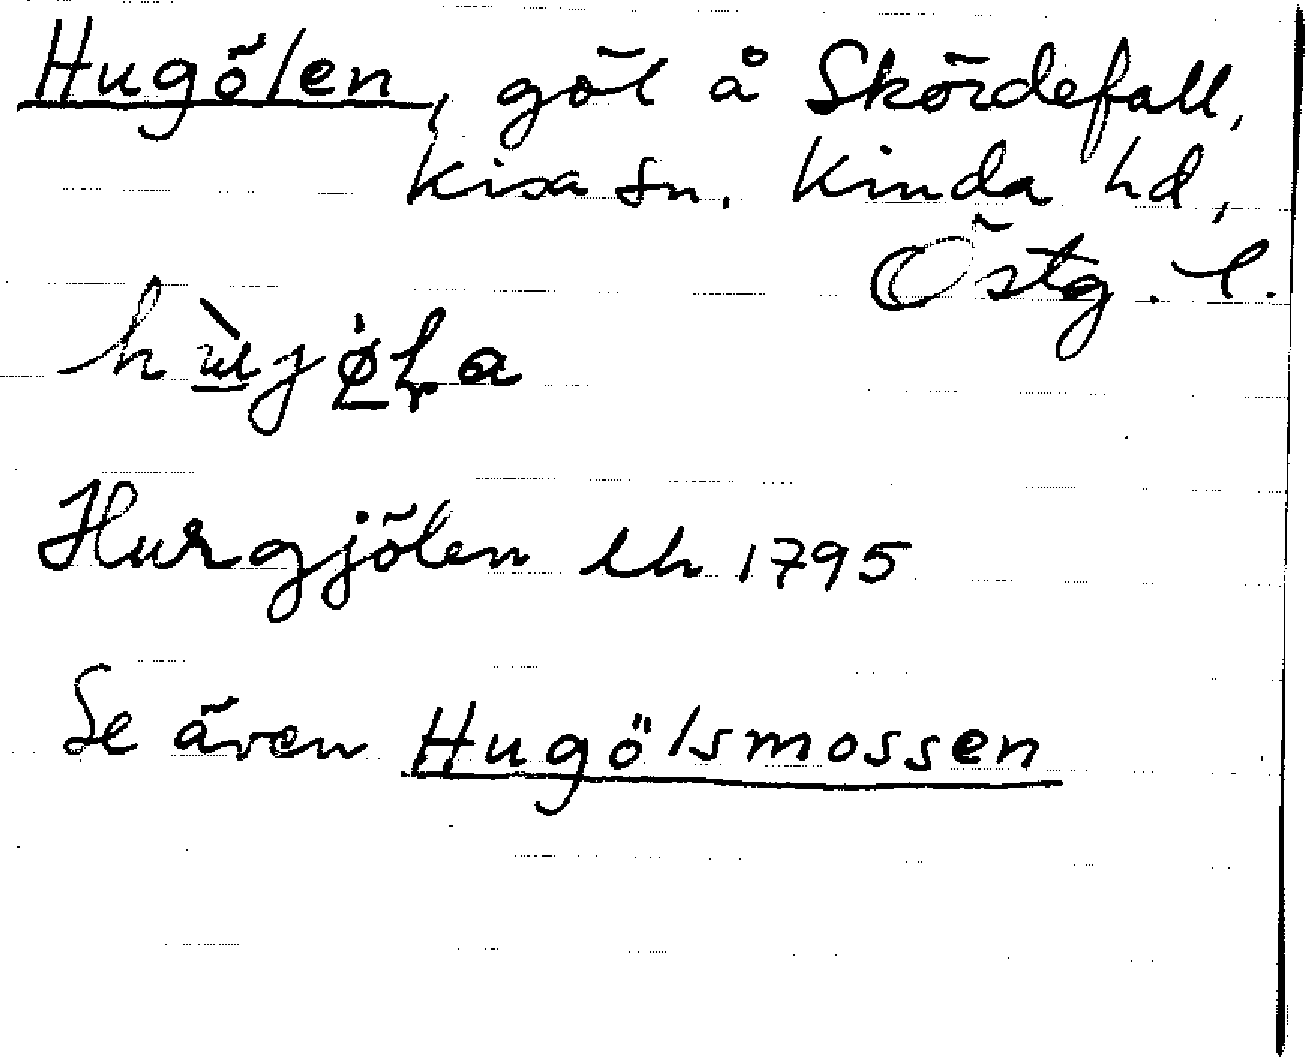 Hugölen, göl å Skördefall,
Kisa sn. Kinda hd,
Östg. l.
Hurgjölen lh 1795
Se även Hugölsmossen